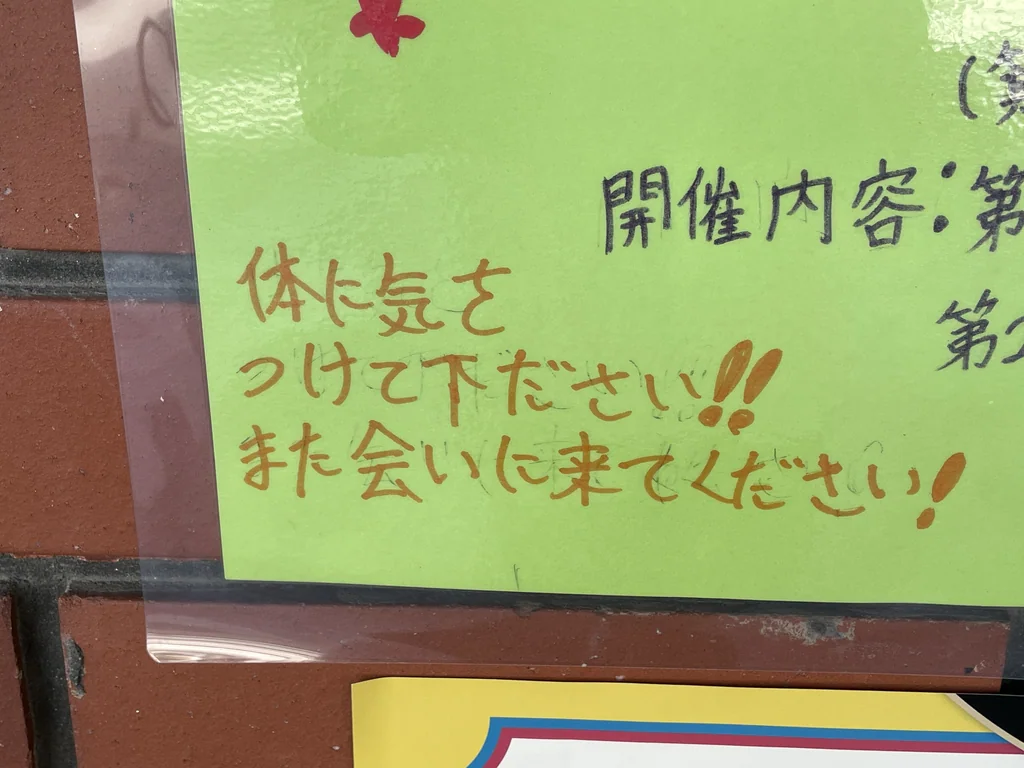 開催内容:第
第2
体に気を
つけて下ださい!!
また会いに来てください!